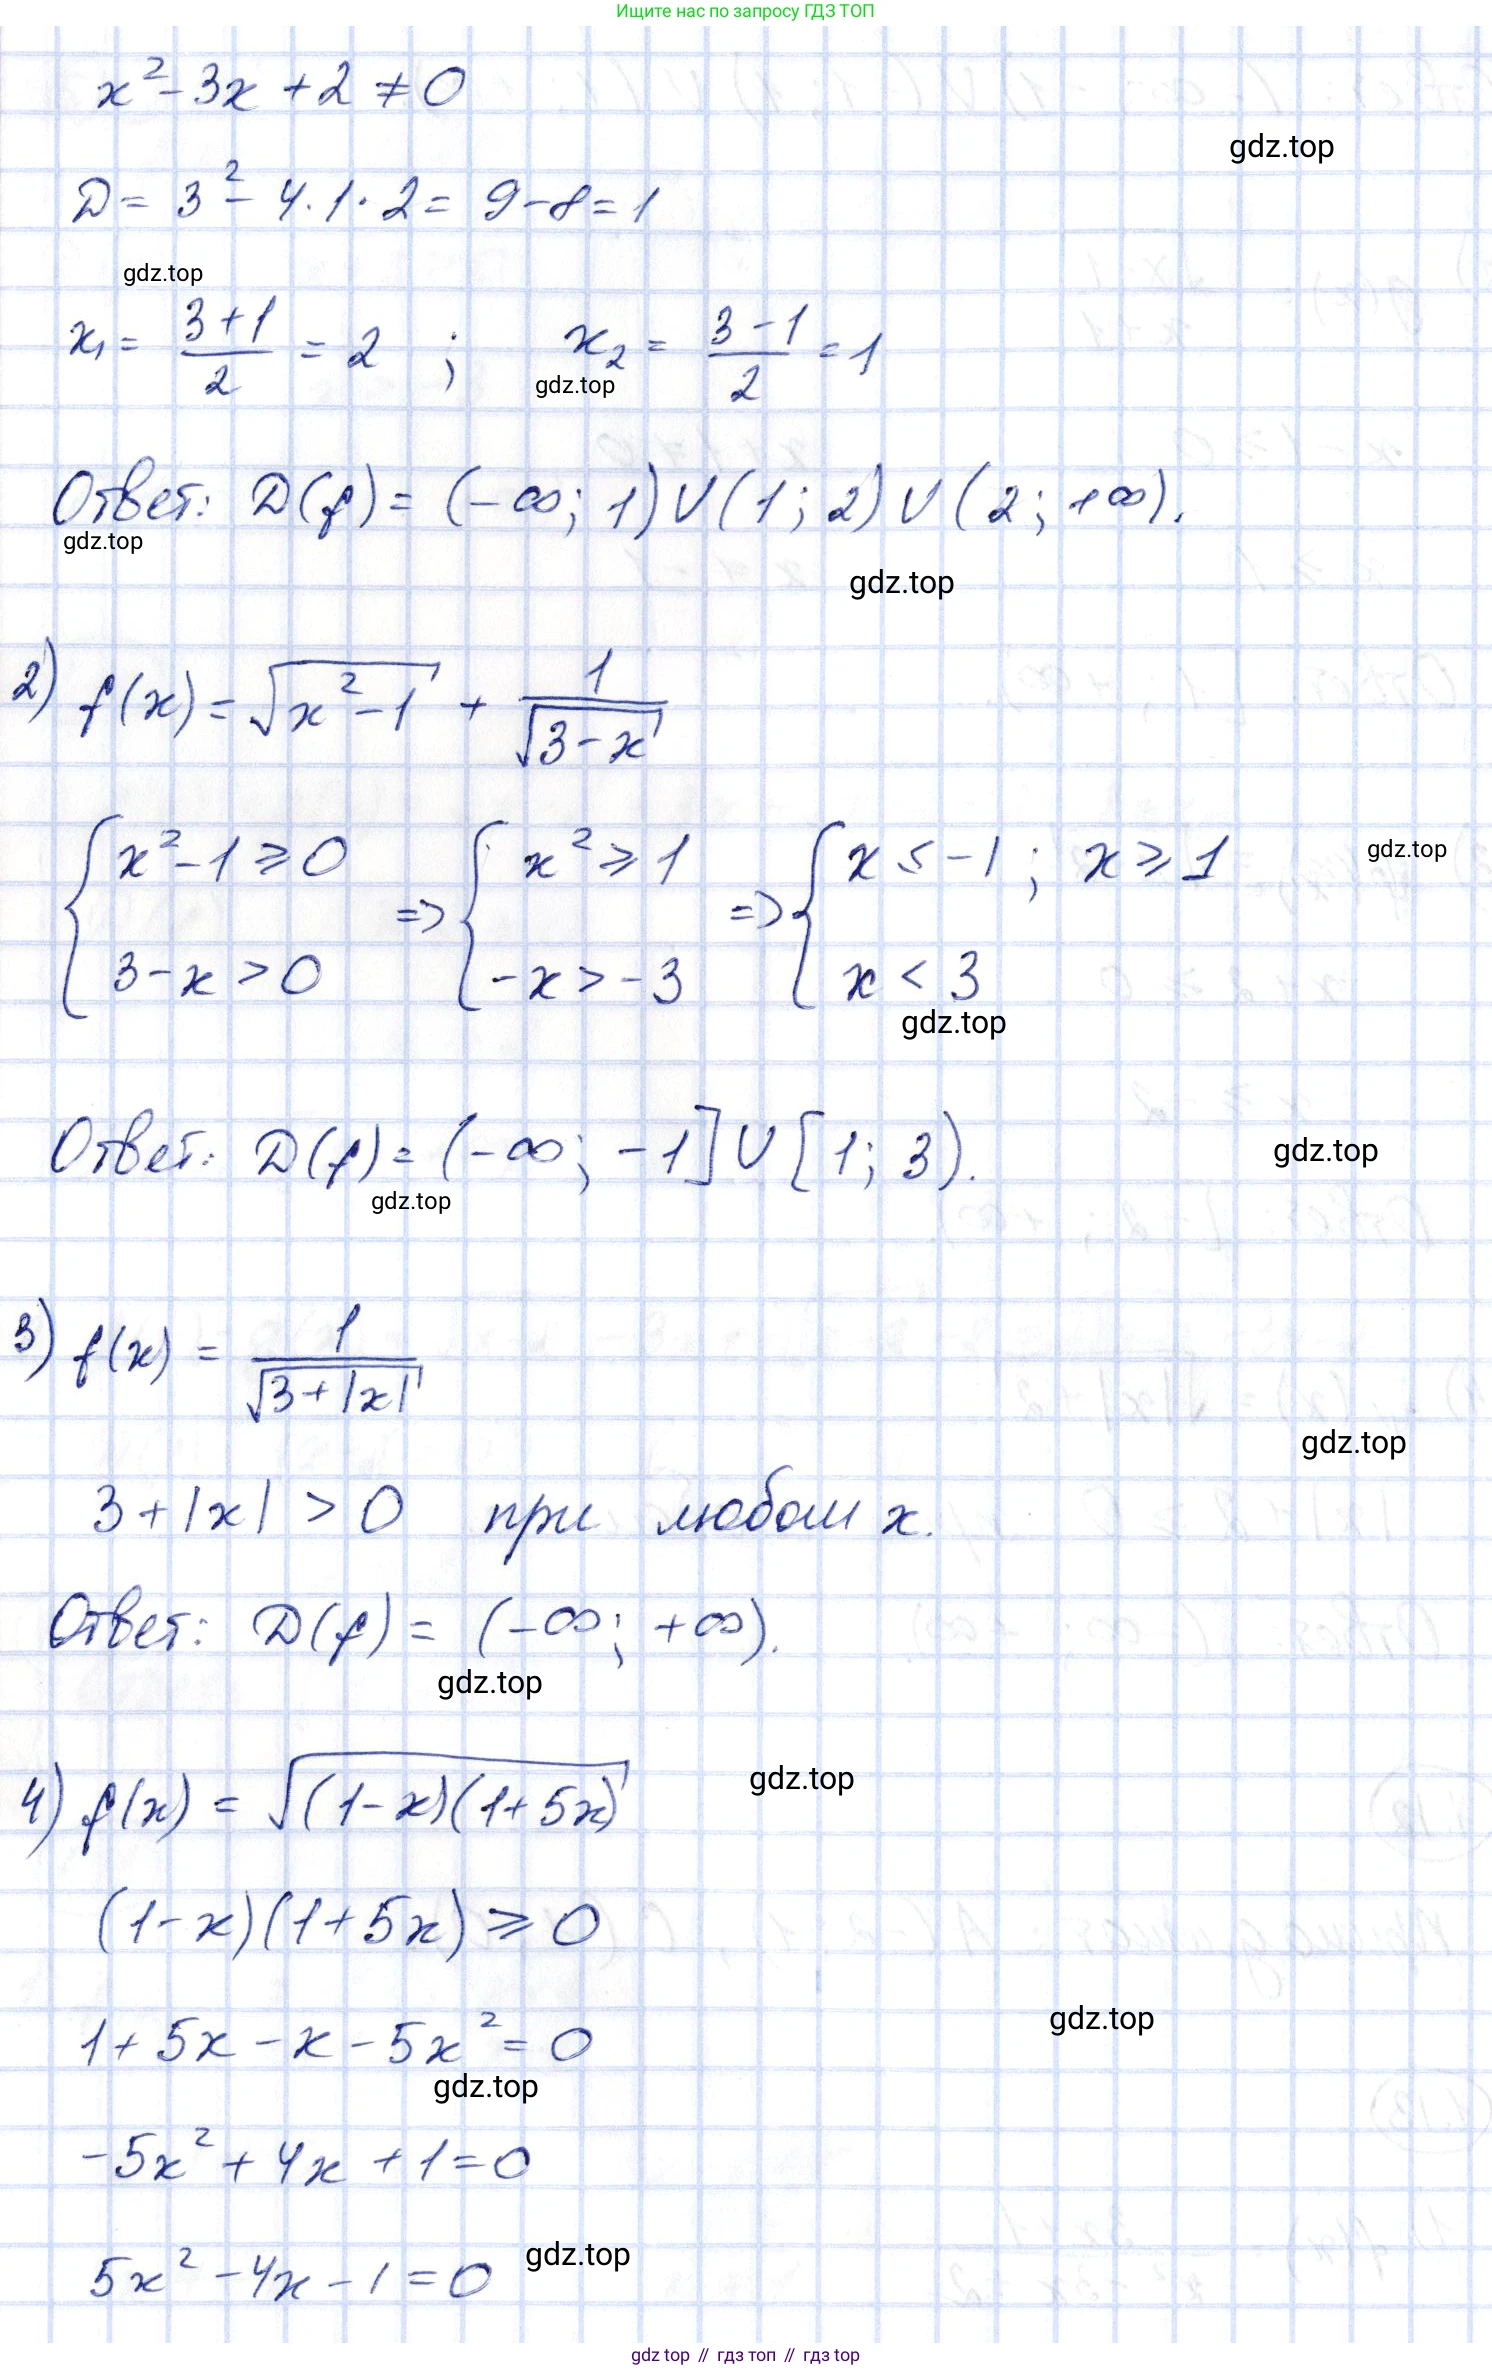 Ищите нас по запросу ГДЗ ТОП
x² - 3x + 2 ≠ 0
gdz.top
D = 3² - 4·1·2 = 9 - 8 = 1
gdz.top
x₁ = (3+1)/2 = 2 ; x₂ = (3-1)/2 = 1
gdz.top
Ответ: D(f) = (-∞; 1) ∪ (1; 2) ∪ (2; +∞).
gdz.top
gdz.top
2) f(x) = √(x²-1) + 1/√(3-x)
{ x² - 1 ≥ 0 ; 3 - x > 0 => { x² ≥ 1 ; -x > -3 => { x ≤ -1 ; x ≥ 1 ; x < 3
gdz.top
gdz.top
Ответ: D(f) = (-∞; -1] ∪ [1; 3).
gdz.top
gdz.top
3) f(x) = 1/√(3+|x|)
gdz.top
3 + |x| > 0 при любом x.
Ответ: D(f) = (-∞; +∞).
gdz.top
4) f(x) = √((1-x)(1+5x))
gdz.top
(1-x)(1+5x) ≥ 0
1 + 5x - x - 5x² = 0
gdz.top
gdz.top
-5x² + 4x + 1 = 0
5x² - 4x - 1 = 0
gdz.top
gdz top // гдз топ // гдз top